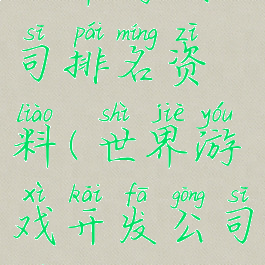 sī pái míng zī
司排名资
liào shì jiè yóu
料(世界游
xì kāi fā gōng sī
戏开发公司